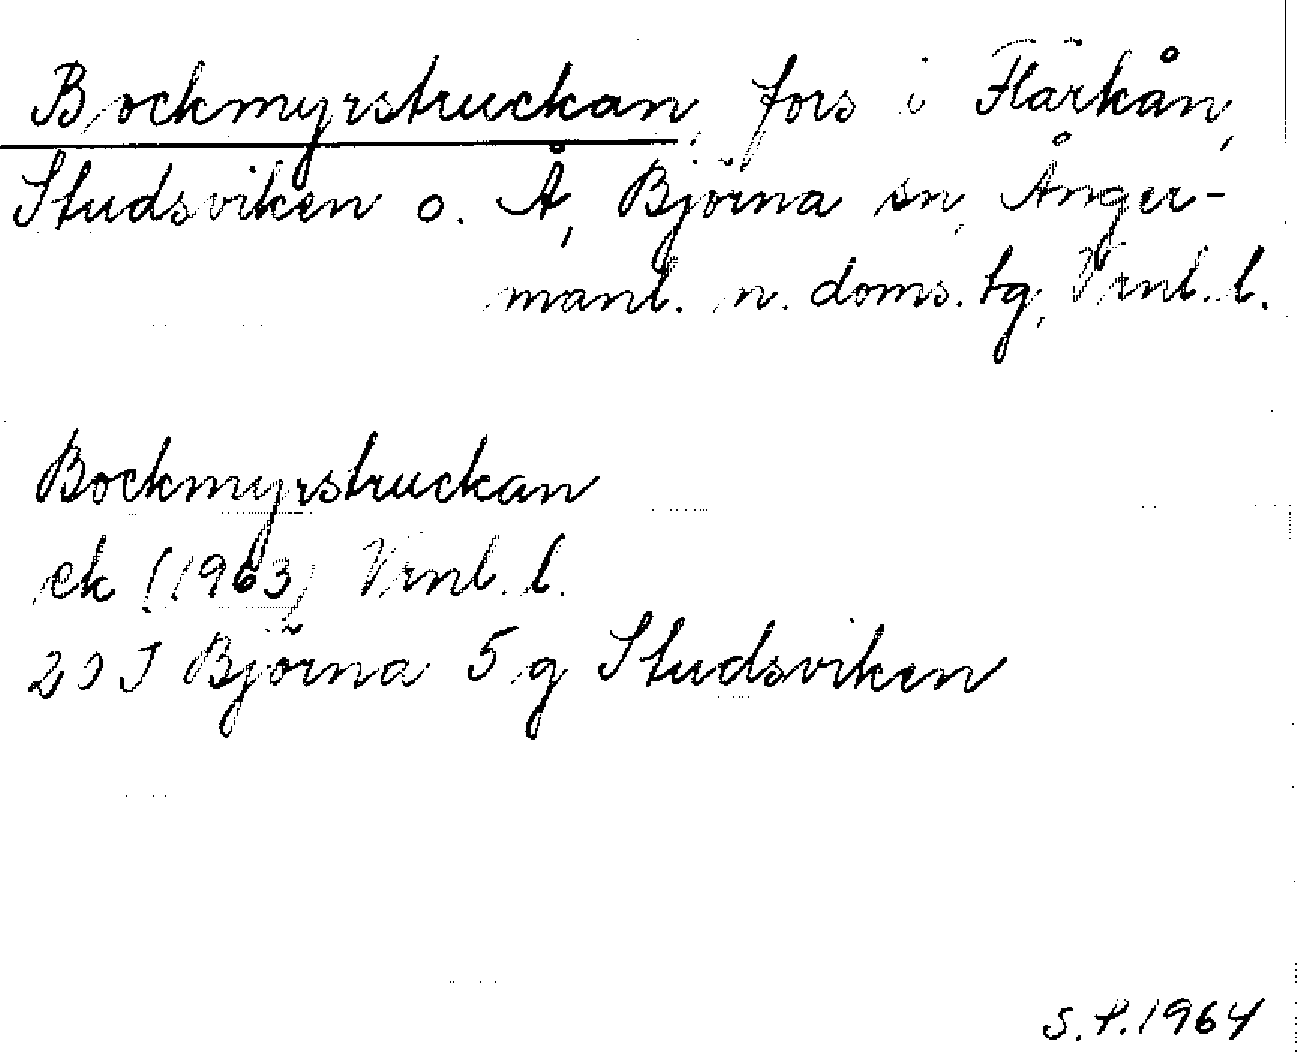 Bockmyrstruckan, fors i Flärkån,
Studsviken o. Å, Björna sn, Ånger-
manl. n. doms. tg, Vrnl. l.
Bockmyrstruckan
ek (1963) Vrnl. l.
20 J Björna 5 g Studsviken
S.P. 1964